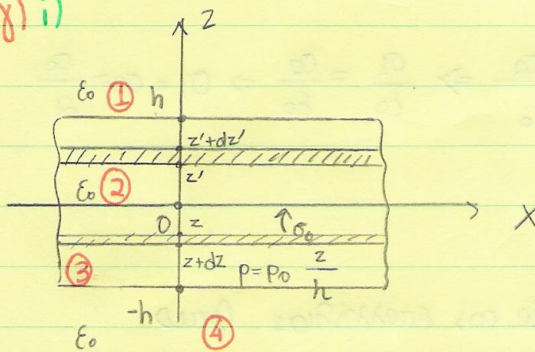 γ) i)
z
ε₀ ① h
z'+dz'
z'
ε₀ ②
0 z ↑σ₀ x
③ z+dz ρ=ρ₀ z/h
-h ④
ε₀